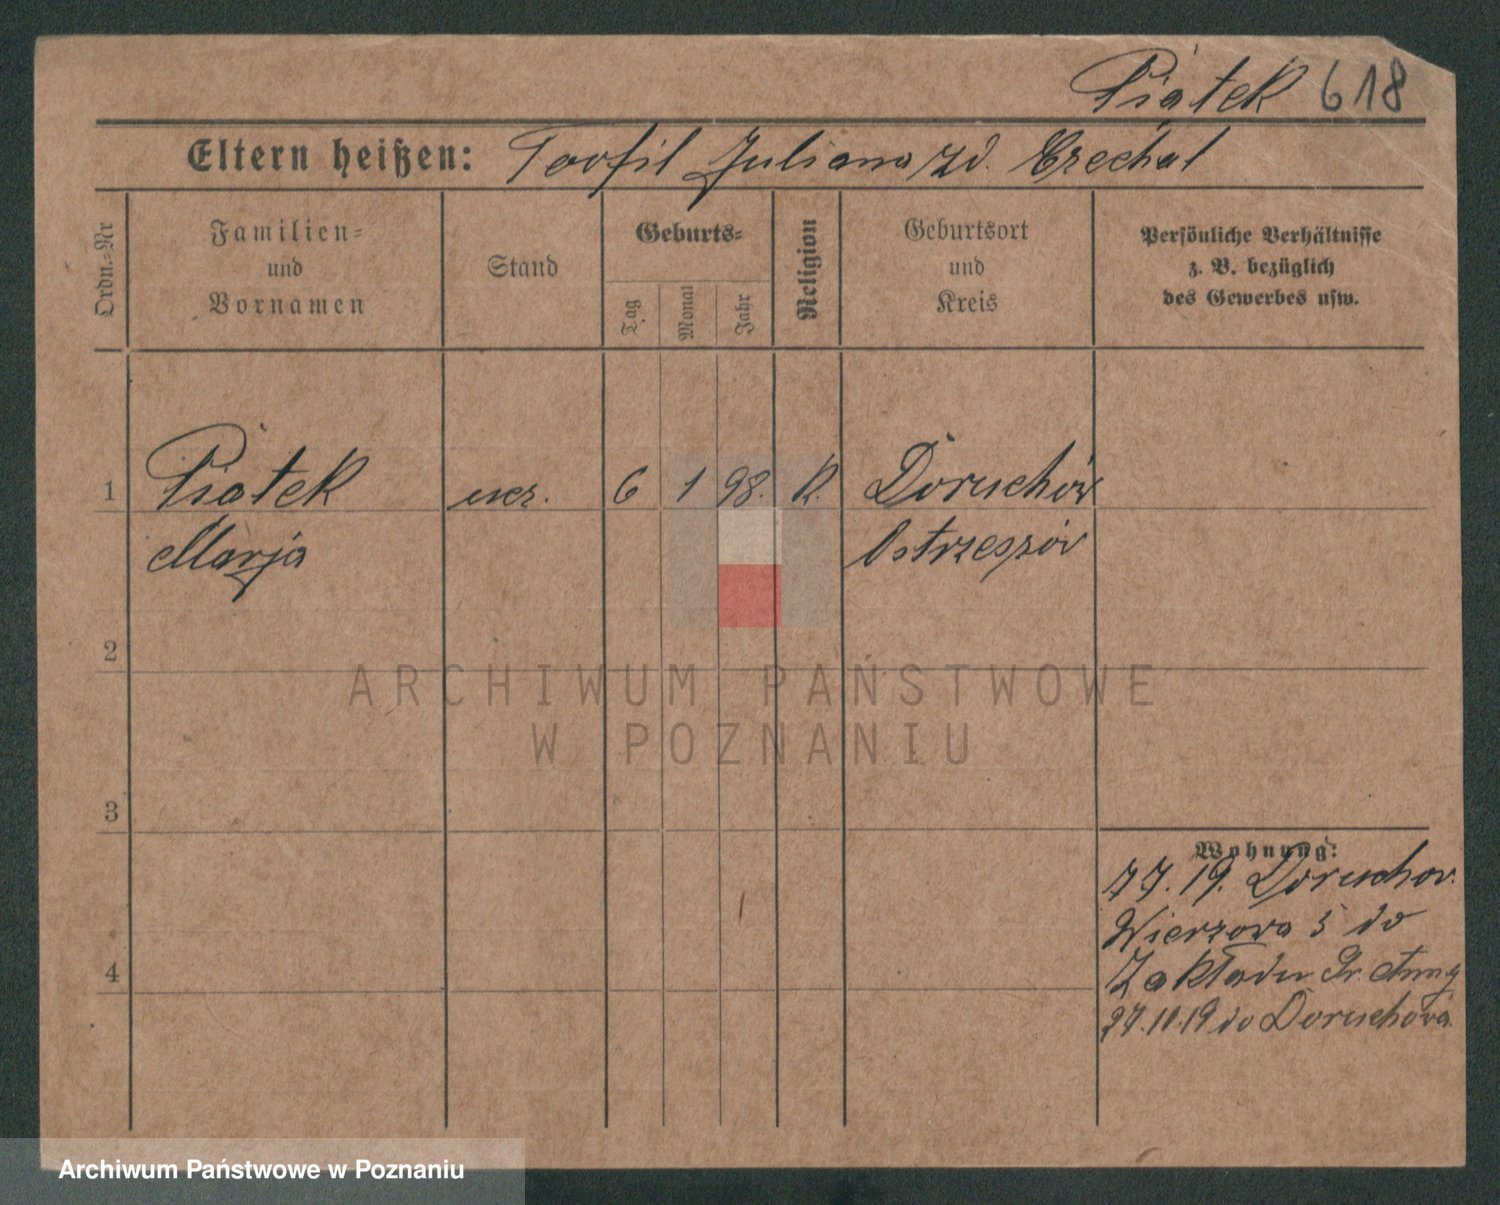 Piątek 618
Eltern heißen: Teofil Juliana zd. Grechal
Ordn.-Nr
Familien- und Vornamen
Stand
Geburts-
Tag
Monat
Jahr
Religion
Geburtsort und Kreis
Persönliche Verhältnisse z. B. bezüglich des Gewerbes usw.
1 Piątek ucz. 6 1 98. K. Doruchów
Marja Ostrzeszów
2
3
4
Wohnung:
19. Doruchov.
3 do
Zakładu Gr. Anny
27.10.19 do Doruchowa.
ARCHIWUM PAŃSTWOWE
W POZNANIU
Archiwum Państwowe w Poznaniu